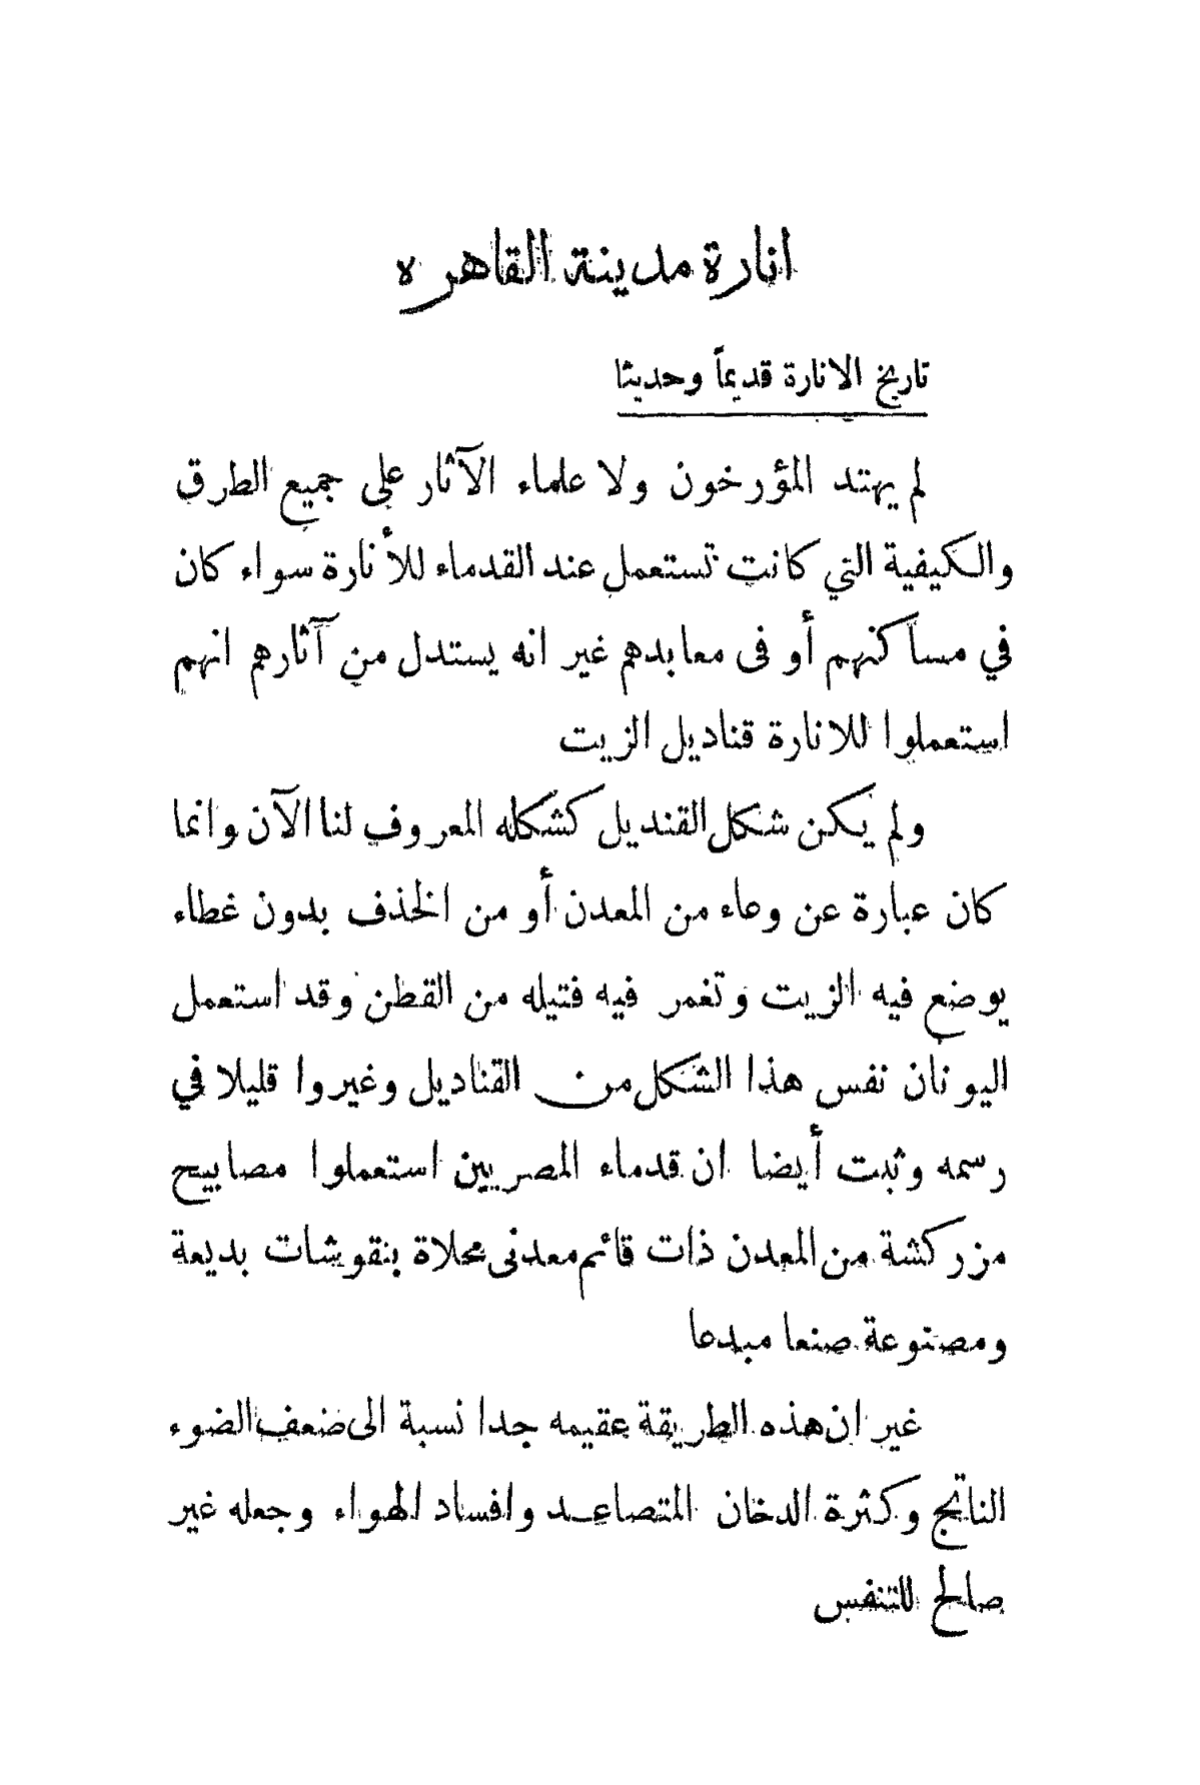 انارة مدينة القاهره
تاريخ الانارة قديماً وحديثا
لم يهتد المؤرخون ولا علماء الآثار على جميع الطرق
والكيفية التي كانت تستعمل عند القدماء للأنارة سواء كان
في مساكنهم أو فى معابدهم غير انه يستدل من آثارهم انهم
استعملوا للانارة قناديل الزيت
ولم يكن شكل القنديل كشكله المعروف لنا الآن وانما
كان عبارة عن وعاء من المعدن أو من الخذف بدون غطاء
يوضع فيه الزيت وتغمر فيه فتيله من القطن وقد استعمل
اليونان نفس هذا الشكل من القناديل وغيروا قليلا في
رسمه وثبت أيضا ان قدماء المصريين استعملوا مصابيح
مزركشة من المعدن ذات قائم معدنى محلاة بنقوشات بديعة
ومصنوعة صنعا مبدعا
غير ان هذه الطريقة عقيمه جدا نسبة الى ضعف الضوء
الناتج وكثرة الدخان المتصاعد وافساد الهواء وجعله غير
صالح للتنفس